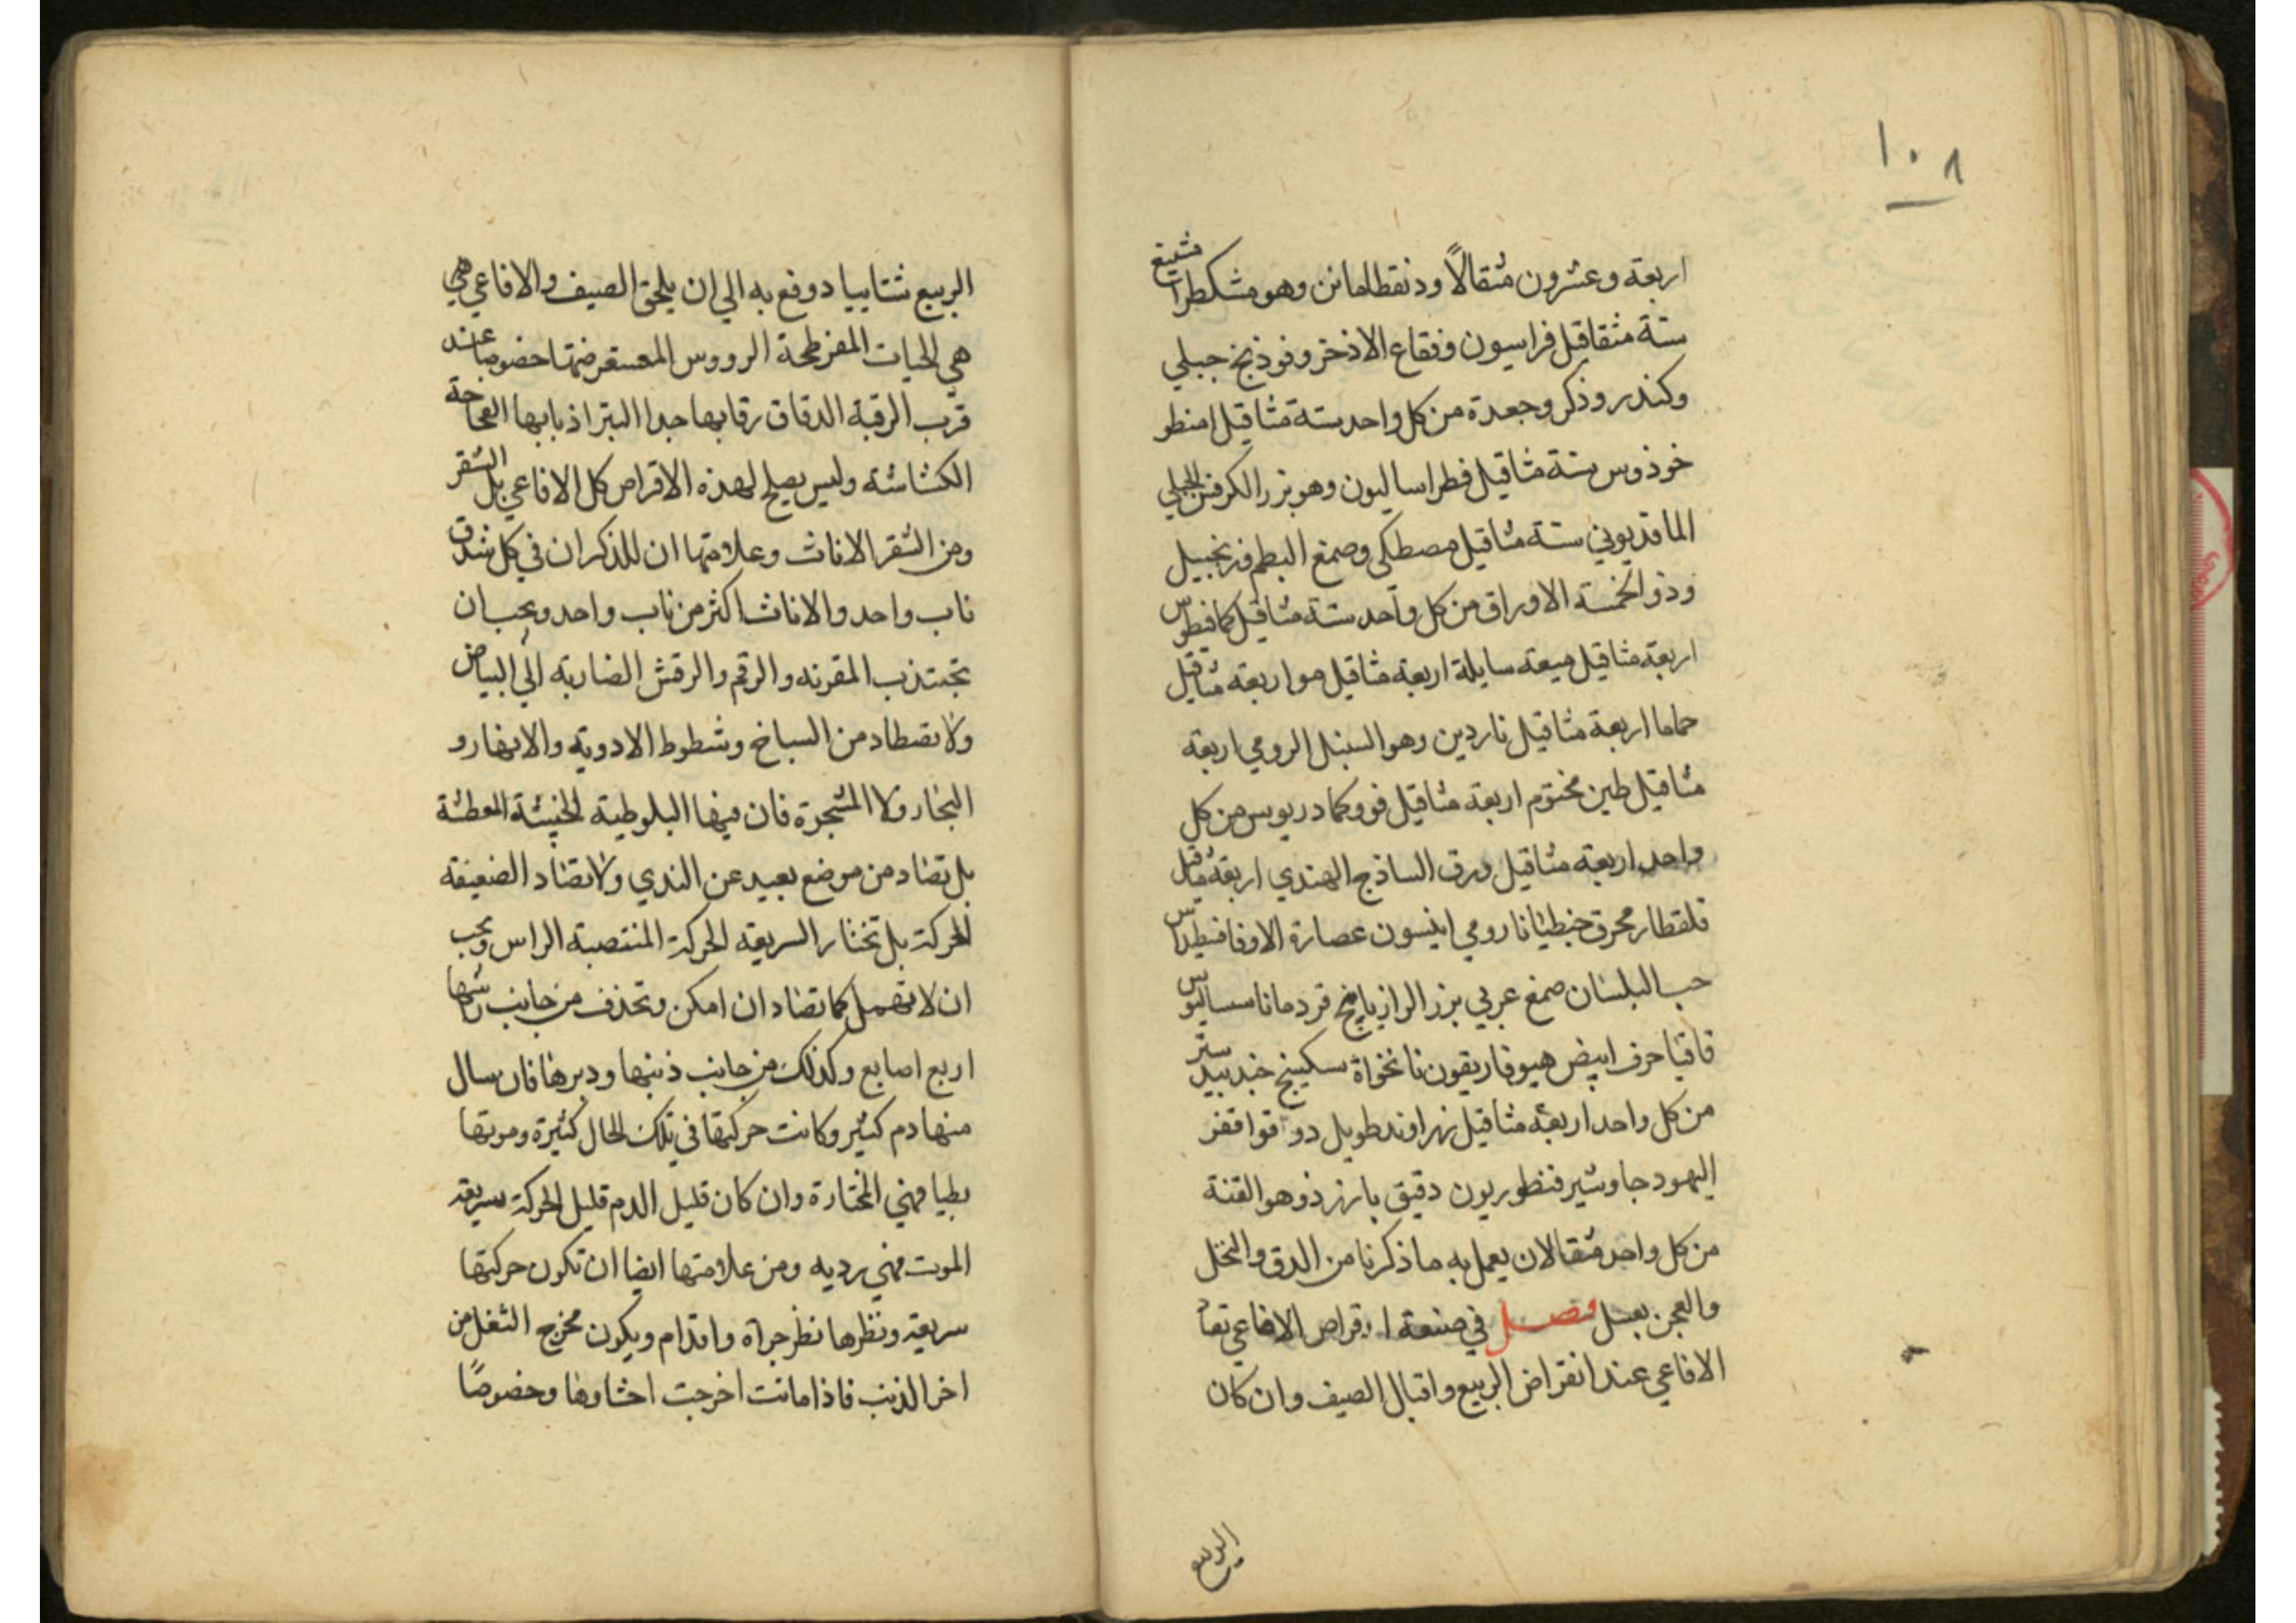 ١٠٨
اربعة وعشرون مثقالاً ودنقطاماىن وهو مشكطرا مشيغ
ستة مثقاقل فراسيون وفقاع الاذخر وفوذنج جبلي
وكندر وذكر وجعدة من كل واحد ستة مثاقيل امنطر
خوذوس ستة مثاقيل فطراساليون وهو بزر الكرفس الجبلي
الماقديوني ستة مثاقيل مصطكى وصمغ البطم فزنجبيل
وذو الخمسة الاوراق من كل واحد ستة مثاقيل كمافيطوس
اربعة مثاقيل ميعه سايلة اربعة مثاقيل مو اربعة مثاقيل
حماما اربعة مثاقيل ناردين وهو السنبل الرومي اربعة
مثاقيل طين مختوم اربعة مثاقيل فو وكمادريوس من كل
واحد اربعة مثاقيل ورق الساذج الهندي اربعة مثاقيل
قلقطار محرق خبطيانا رومي انيسون عصارة الاوفاقسطيداس
حب البلسان صمغ عربي بزر الرازيانج قردمانا سساليوس
قاقيا حرف ابيض هيوفاريقون نانخواة سكبينج جندبيدستر
من كل واحد اربعة مثاقيل زراوند طويل دوقوا قفر
اليهود جاوشير فنطوريون دقيق بارزذ وهو القنة
من كل واحد مثقالان يعمل به ما ذكرنا من الدق والنخل
والعجن بعسل فصل في صنعة اقراص الافاعي تصاد
الافاعي عند انقراض الربيع واقبال الصيف وان كان
الربيع
الربيع شتاييا دوفع به الي ان يلحق الصيف والافاعي هي
هي الحيات المفرطحة الرووس المستعرضتها خصوصا عند
قرب الرقبة الدقاق رقابها جدا البتر اذبابها الفحاحة
الكشاشة وليس يصلح لهذه الاقراص كل الافاعي بل الشقر
ومن الشقر الاناث وعلامتها ان للذكران في كل شدق
ناب واحد والاناث اكثر من ناب واحد ويجب ان
تجتذب المقرنه والرقم والرقش الضاربة الي البياض
ولا تصطاد من السباخ وشطوط الادوية والانهار و
البخار ولا المشجرة فان فيها البلوطية الخبيثة المعطشة
بل تصاد من موضع بعيد عن الندي ولا تصاد الضعيفة
الحركة بل تختار السريعة الحركة المنتصبة الراس ويجب
ان لا تهمل كما تصاد ان امكن وتحذف من جانب راسها
اربع اصابع وكذلك من جانب ذنبها ودبرها فان سال
منها دم كثير وكانت حركتها في تلك الحال كثيرة وموتها
بطيا فهي المختارة وان كان قليل الدم قليل الحركة سريعة
الموت فهي رديه ومن علامتها ايضا ان تكون حركتها
سريعة ونظرها نظر جراه واقدام ويكون مخرج الثفل من
اخر الذنب فاذا ماتت اخرجت احشاوها وخصوصًا